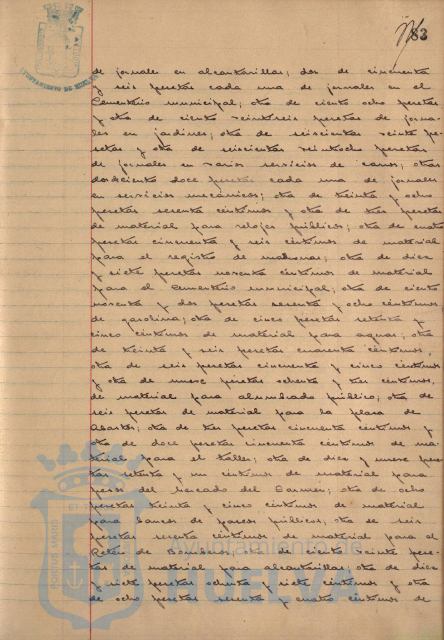 83
AYUNTAMIENTO DE HUELVA
de jornales en alcantarillas; dos de cincuenta
y seis pesetas cada una de jornales en el
Cementerio municipal; otra de ciento ocho pesetas
y otra de ciento veintiseis pesetas de jorna-
les en jardines; otra de seiscientas veinte pe-
setas y otra de seiscientas veintiocho pesetas
de jornales en varios servicios de carros; otras
doscientas doce pesetas cada una de jornales
en servicios mecánicos; otra de treinta y ocho
pesetas sesenta céntimos y otra de tres pesetas
de material para relojes públicos; otra de cuatro
pesetas cincuenta y seis céntimos de material
para el registro de; otra de diez
y siete pesetas noventa céntimos de material
para el Cementerio municipal; otra de ciento
noventa y dos pesetas sesenta y ocho céntimos
de gasolina; otra de cinco pesetas setenta y
cinco céntimos de material para aguas; otra
de treinta y seis pesetas cuarenta céntimos,
otra de seis pesetas cincuenta y cinco céntimos
y otra de nueve pesetas ochenta y tres céntimos,
de material para alumbrado público; otra de
seis pesetas de material para la plaza de
Abastos; otra de tres pesetas cincuenta céntimos y
otra de doce pesetas cincuenta céntimos de ma-
terial para el taller; otra de diez y nueve pese-
tas setenta y un céntimos de material para
peso del mercado del Carmen; otra de ocho
pesetas treinta y cinco céntimos de material
para bancos de paseos públicos; otra de seis
pesetas sesenta céntimos de material para el
Retén de bomberos; otra de ciento veinte pese-
tas de material para alcantarillas; otra de diez
y siete pesetas ochenta y siete céntimos y otra
de ocho pesetas sesenta y cuatro céntimos de
Ayuntamiento de
HUELVA